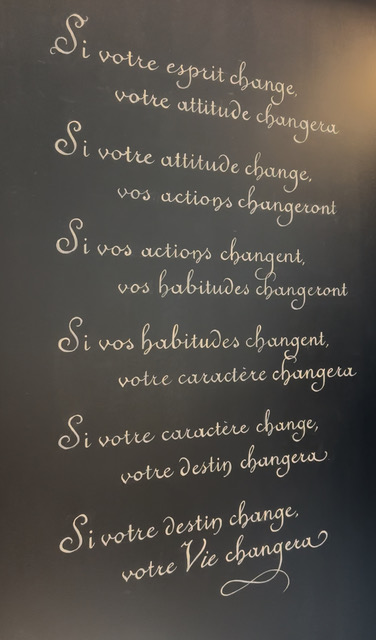 Si votre esprit change,
votre attitude changera
Si votre attitude change,
vos actions changeront
Si vos actions changent,
vos habitudes changeront
Si vos habitudes changent,
votre caractère changera
Si votre caractère change,
votre destin changera
Si votre destin change,
votre Vie changera